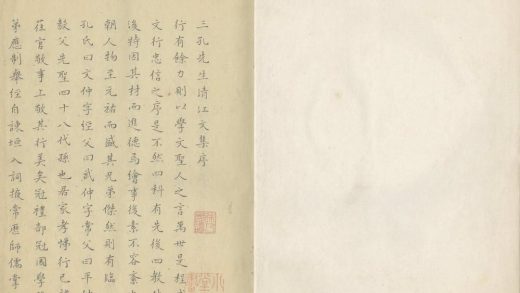 三孔先生清江文集序
行有餘力則以學文聖人之言萬世是程
文行忠信之序是不然四科有先後四教
後特因其材而進德焉繪事後素不容紊
朝人物至元祐而盛其兄弟傑然則有臨
孔氏曰文仲字經父曰武仲字常父曰平仲
毅父先聖四十八代孫也居家孝悌行己
莅官敬事上敬其行美矣冠禮部冠國學
弟應制舉經自諫垣入詞掖常歷師儒掌